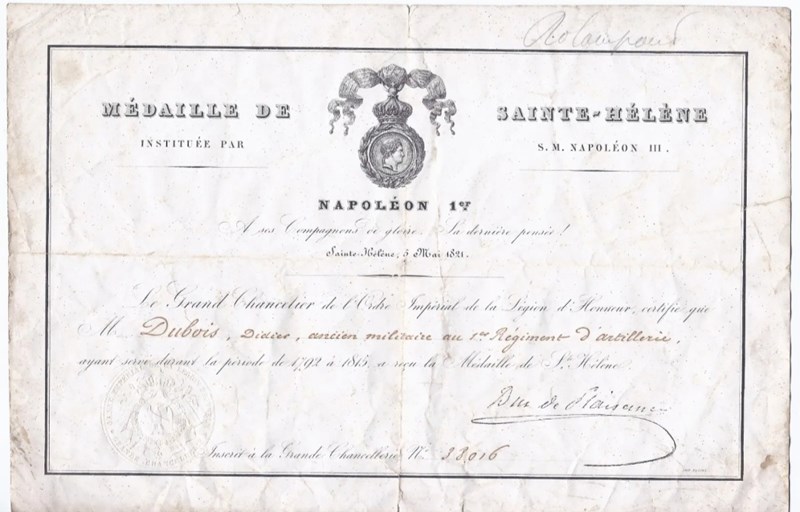 Rolampont
MÉDAILLE DE SAINTE-HÉLÈNE
INSTITUÉE PAR S. M. NAPOLÉON III.
NAPOLÉON 1er
A ses Compagnons de gloire. Sa dernière pensée!
Sainte Hélène, 5 Mai 1821.
Le Grand Chancelier de l'Ordre Impérial de la Légion d'Honneur, certifie que
M Dubois, Didier, ancien militaire au 1er Régiment d'artillerie,
ayant servi durant la période de 1792 à 1815, a reçu la Médaille de Ste Hélène.
Duc de Plaisance
Inscrit à la Grande Chancellerie No 33,016